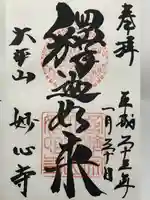 奉拝
平成二十三年
一月三十日
釋迦如来
大平山
妙心寺